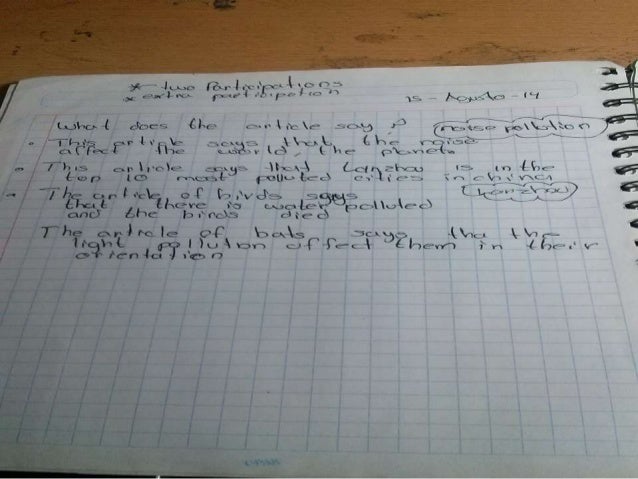 * two Participations
* extra participation
15 - Agosto - 14
What does the article say? noise pollution
• This article says that the noise
affect the world, the planets
• This article says that Lanzhou is in the
top 10 most polluted cities in china
lanzhou
- The article of birds says
that there is water polluted
and the birds died
The article of bats says tha the
light pollution affect them in their
orientation